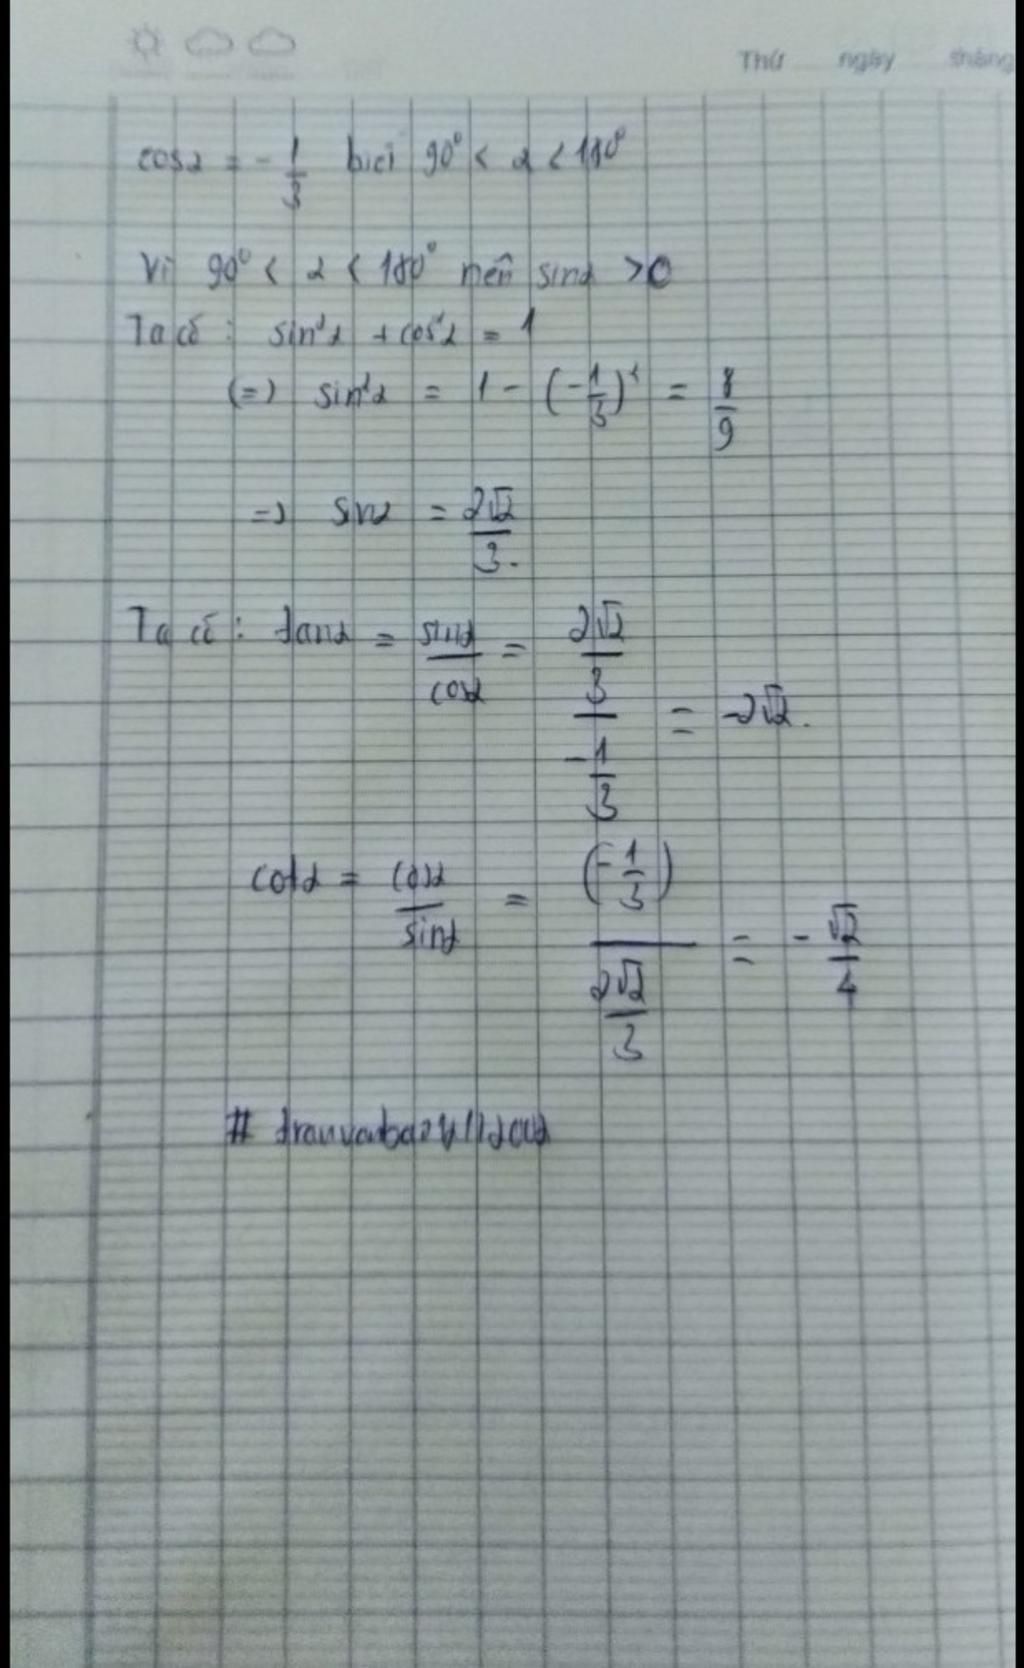 Thứ ngày tháng
cosα = -1/3 biết 90° < α < 180°
Vì 90° < α < 180° nên sinα > 0
Ta có : sin²α + cos²α = 1
(=) sin²α = 1 - (-1/3)² = 8/9
=> sinα = 2√2/3.
Ta có : tanα = sinα/cosα = (2√2/3)/(-1/3) = -2√2.
cotα = cosα/sinα = (-1/3)/(2√2/3) = -√2/4